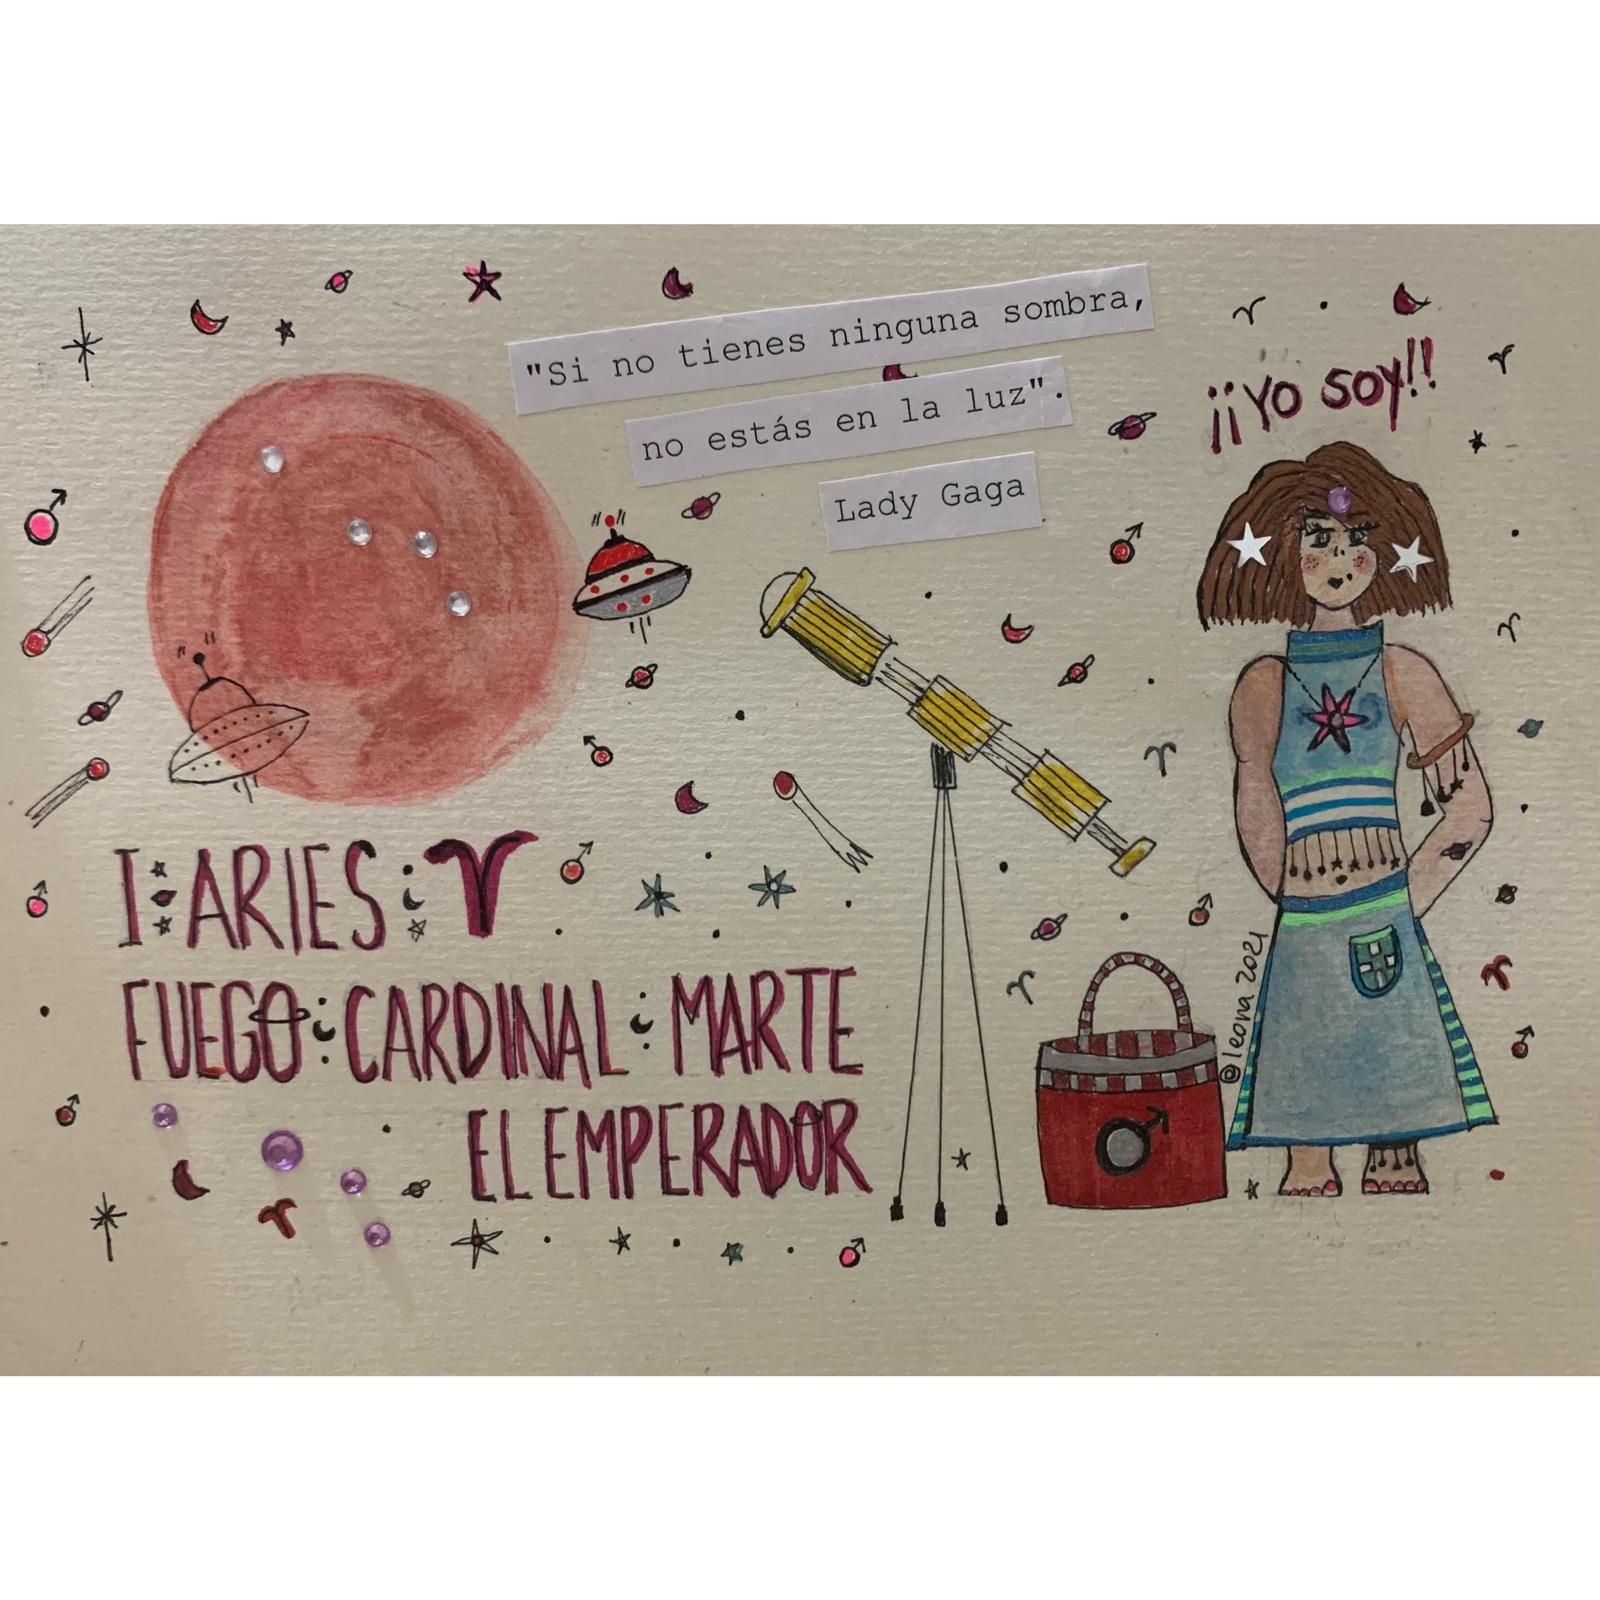 "Si no tienes ninguna sombra,
no estás en la luz".
Lady Gaga
¡¡YO SOY!!
I:ARIES:♈
FUEGO:CARDINAL:MARTE
EL EMPERADOR
@leona 2021